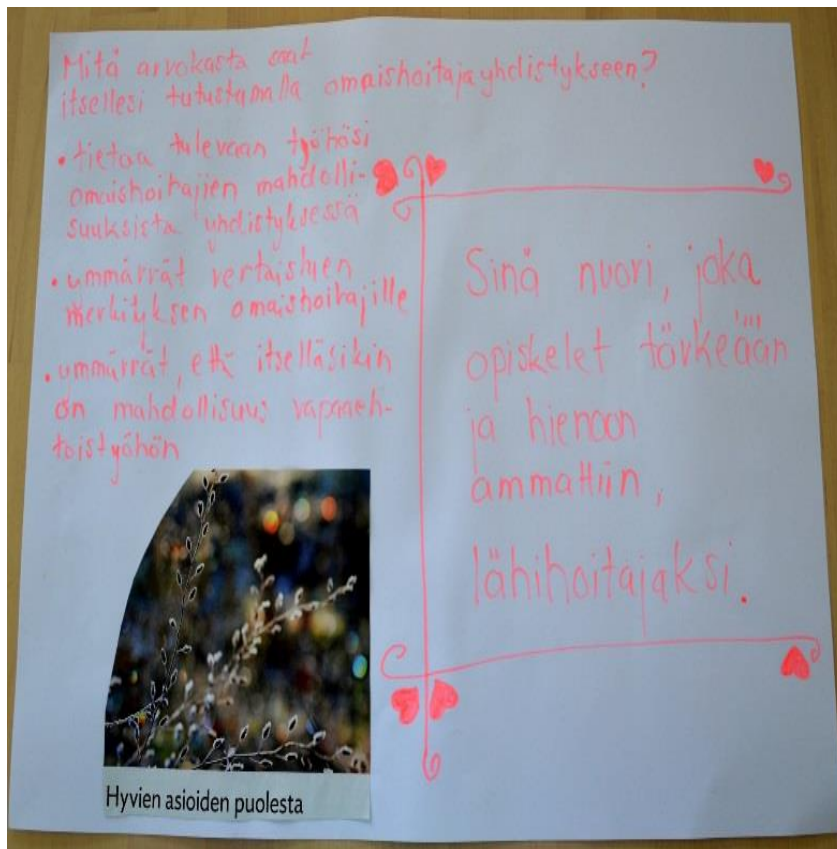 Mitä arvokasta saat
itsellesi tutustamalla omaishoitajayhdistykseen?
• tietoa tulevaan työhösi
omaishoitajien mahdolli-
suuksista yhdistyksessä
• ummärrät vertaistuen
merkityksen omaishoitajille
• ummärrät, että itselläsikin
on mahdollisuus vapaaeh-
toistyöhön
Hyvien asioiden puolesta
Sinä nuori, joka
opiskelet tärkeään
ja hienoon
ammattiin,
lähihoitajaksi.